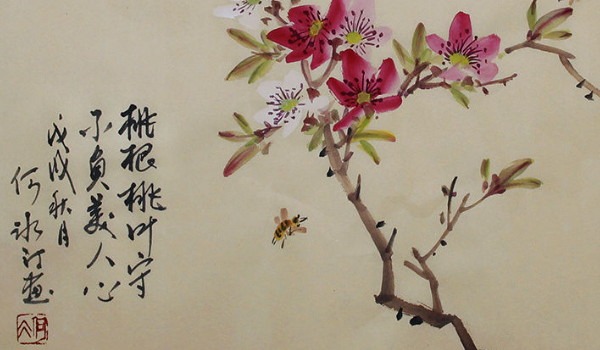 桃根桃叶守
不负美人心
戊戌秋月
何冰汀画